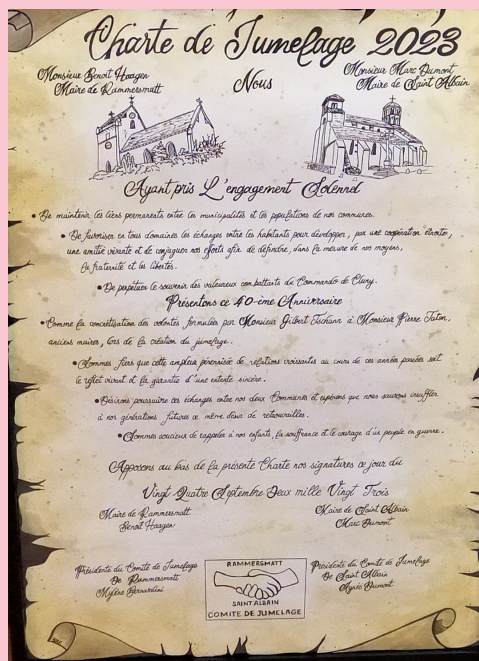 Charte de Jumelage 2023
Monsieur Benoit Haagen
Maire de Rammersmatt
Nous
Monsieur Marc Dumont
Maire de Saint Albain
Ayant pris L'engagement Solennel
• De maintenir les liens permanents entre les municipalités et les populations de nos communes.
• De favoriser en tous domaines les échanges entre les habitants pour développer, par une coopération étroites,
une amitié vivante et de conjuguer nos efforts afin de défendre, dans la mesure de nos moyens,
la fraternité et les libertés.
• De perpétuer le souvenir des valeureux combattants du Commando de Cluny.
Présentons ce 40-ème Anniversaire
• Comme la concrétisation des volontés formulées par Monsieur Gilbert Tschann à Monsieur Pierre Talon,
anciens maires, lors de la création du jumelage.
• Sommes fiers que cette ampleur pérennisée de relations croissantes au cours de ces années passées soit
le reflet vivant et la garantie d'une entente sincère.
• Désirons poursuivre ces échanges entre nos deux Communes et espérons que nous saurons insuffler
à nos générations futures ce même désir de retrouvailles.
• Sommes soucieux de rappeler à nos enfants, la souffrance et le courage d'un peuple en guerre.
Apposons au bas de la présente Charte nos signatures ce jour du
Vingt-Quatre Septembre Deux mille Vingt Trois
Maire de Rammersmatt
Benoit Haagen
Maire de Saint Albain
Marc Dumont
Présidente du Comité de Jumelage
De Rammersmatt
Mylène Bernardini
RAMMERSMATT
SAINT ALBAIN
COMITE DE JUMELAGE
Présidente du Comité de Jumelage
De Saint Albain
Agnès Dumont